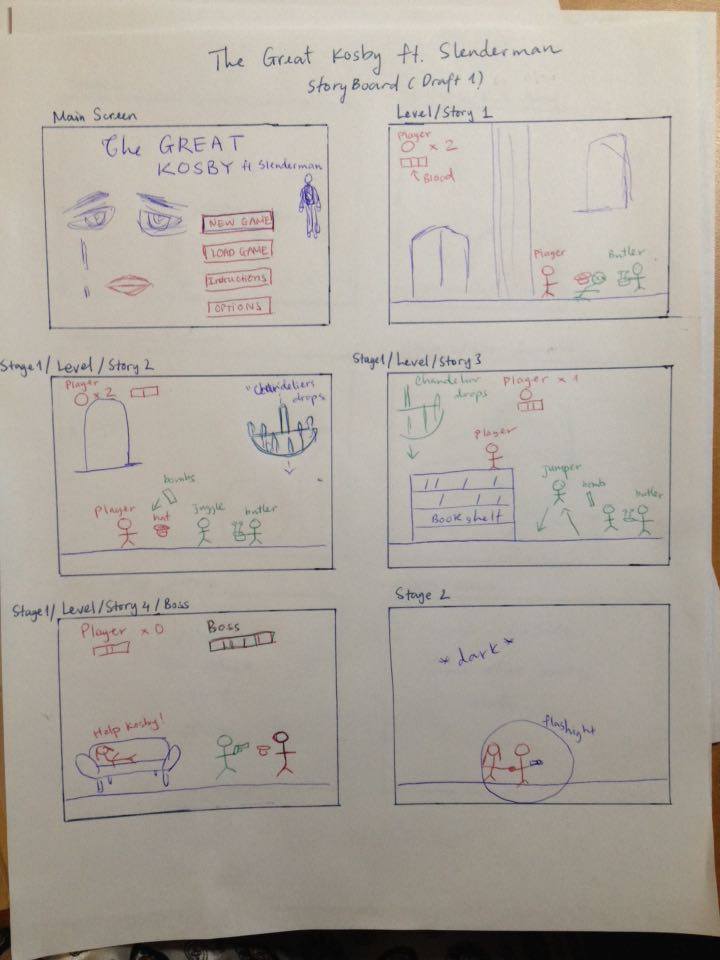 The Great Kosby ft. Slenderman
Story Board (Draft 1)
Main Screen
The GREAT
KOSBY ft Slenderman
NEW GAME
LOAD GAME
Instructions
OPTIONS
Level/Story 1
Player
x 2
Blood
Player
Butler
Stage1/Level/Story 2
Player
x 2
"Chandeliers
drops
bombs
Player
hat
Juggle
butler
Stage1/Level/Story 3
Chandelier
drops
Player x 1
Player
Jumper
bomb
butler
Bookshelf
Stage1/Level/Story 4/Boss
Player x 0
Boss
Help Kosby!
Stage 2
* dark *
flashight